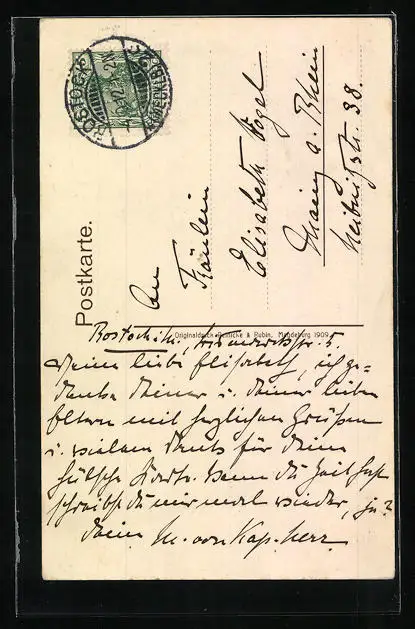 ROSTOCK
Postkarte.
An
Fräulein
Elisabeth Vogel
Mainz a. Rhein
Leibnizstr. 38.
Originaldruck Reinicke & Rubin, Magdeburg 1909
Rostock i. M., 5.
Meine liebe Elisabeth, ich ge-
denke Deiner u. Deiner lieben
Eltern mit herzlichen Grüßen
u. vielem Dank für Deine
hübsche Karte. Wenn Du Zeit hast
schreibst Du mir mal wieder, ja?
Deine M. von Kap-herr